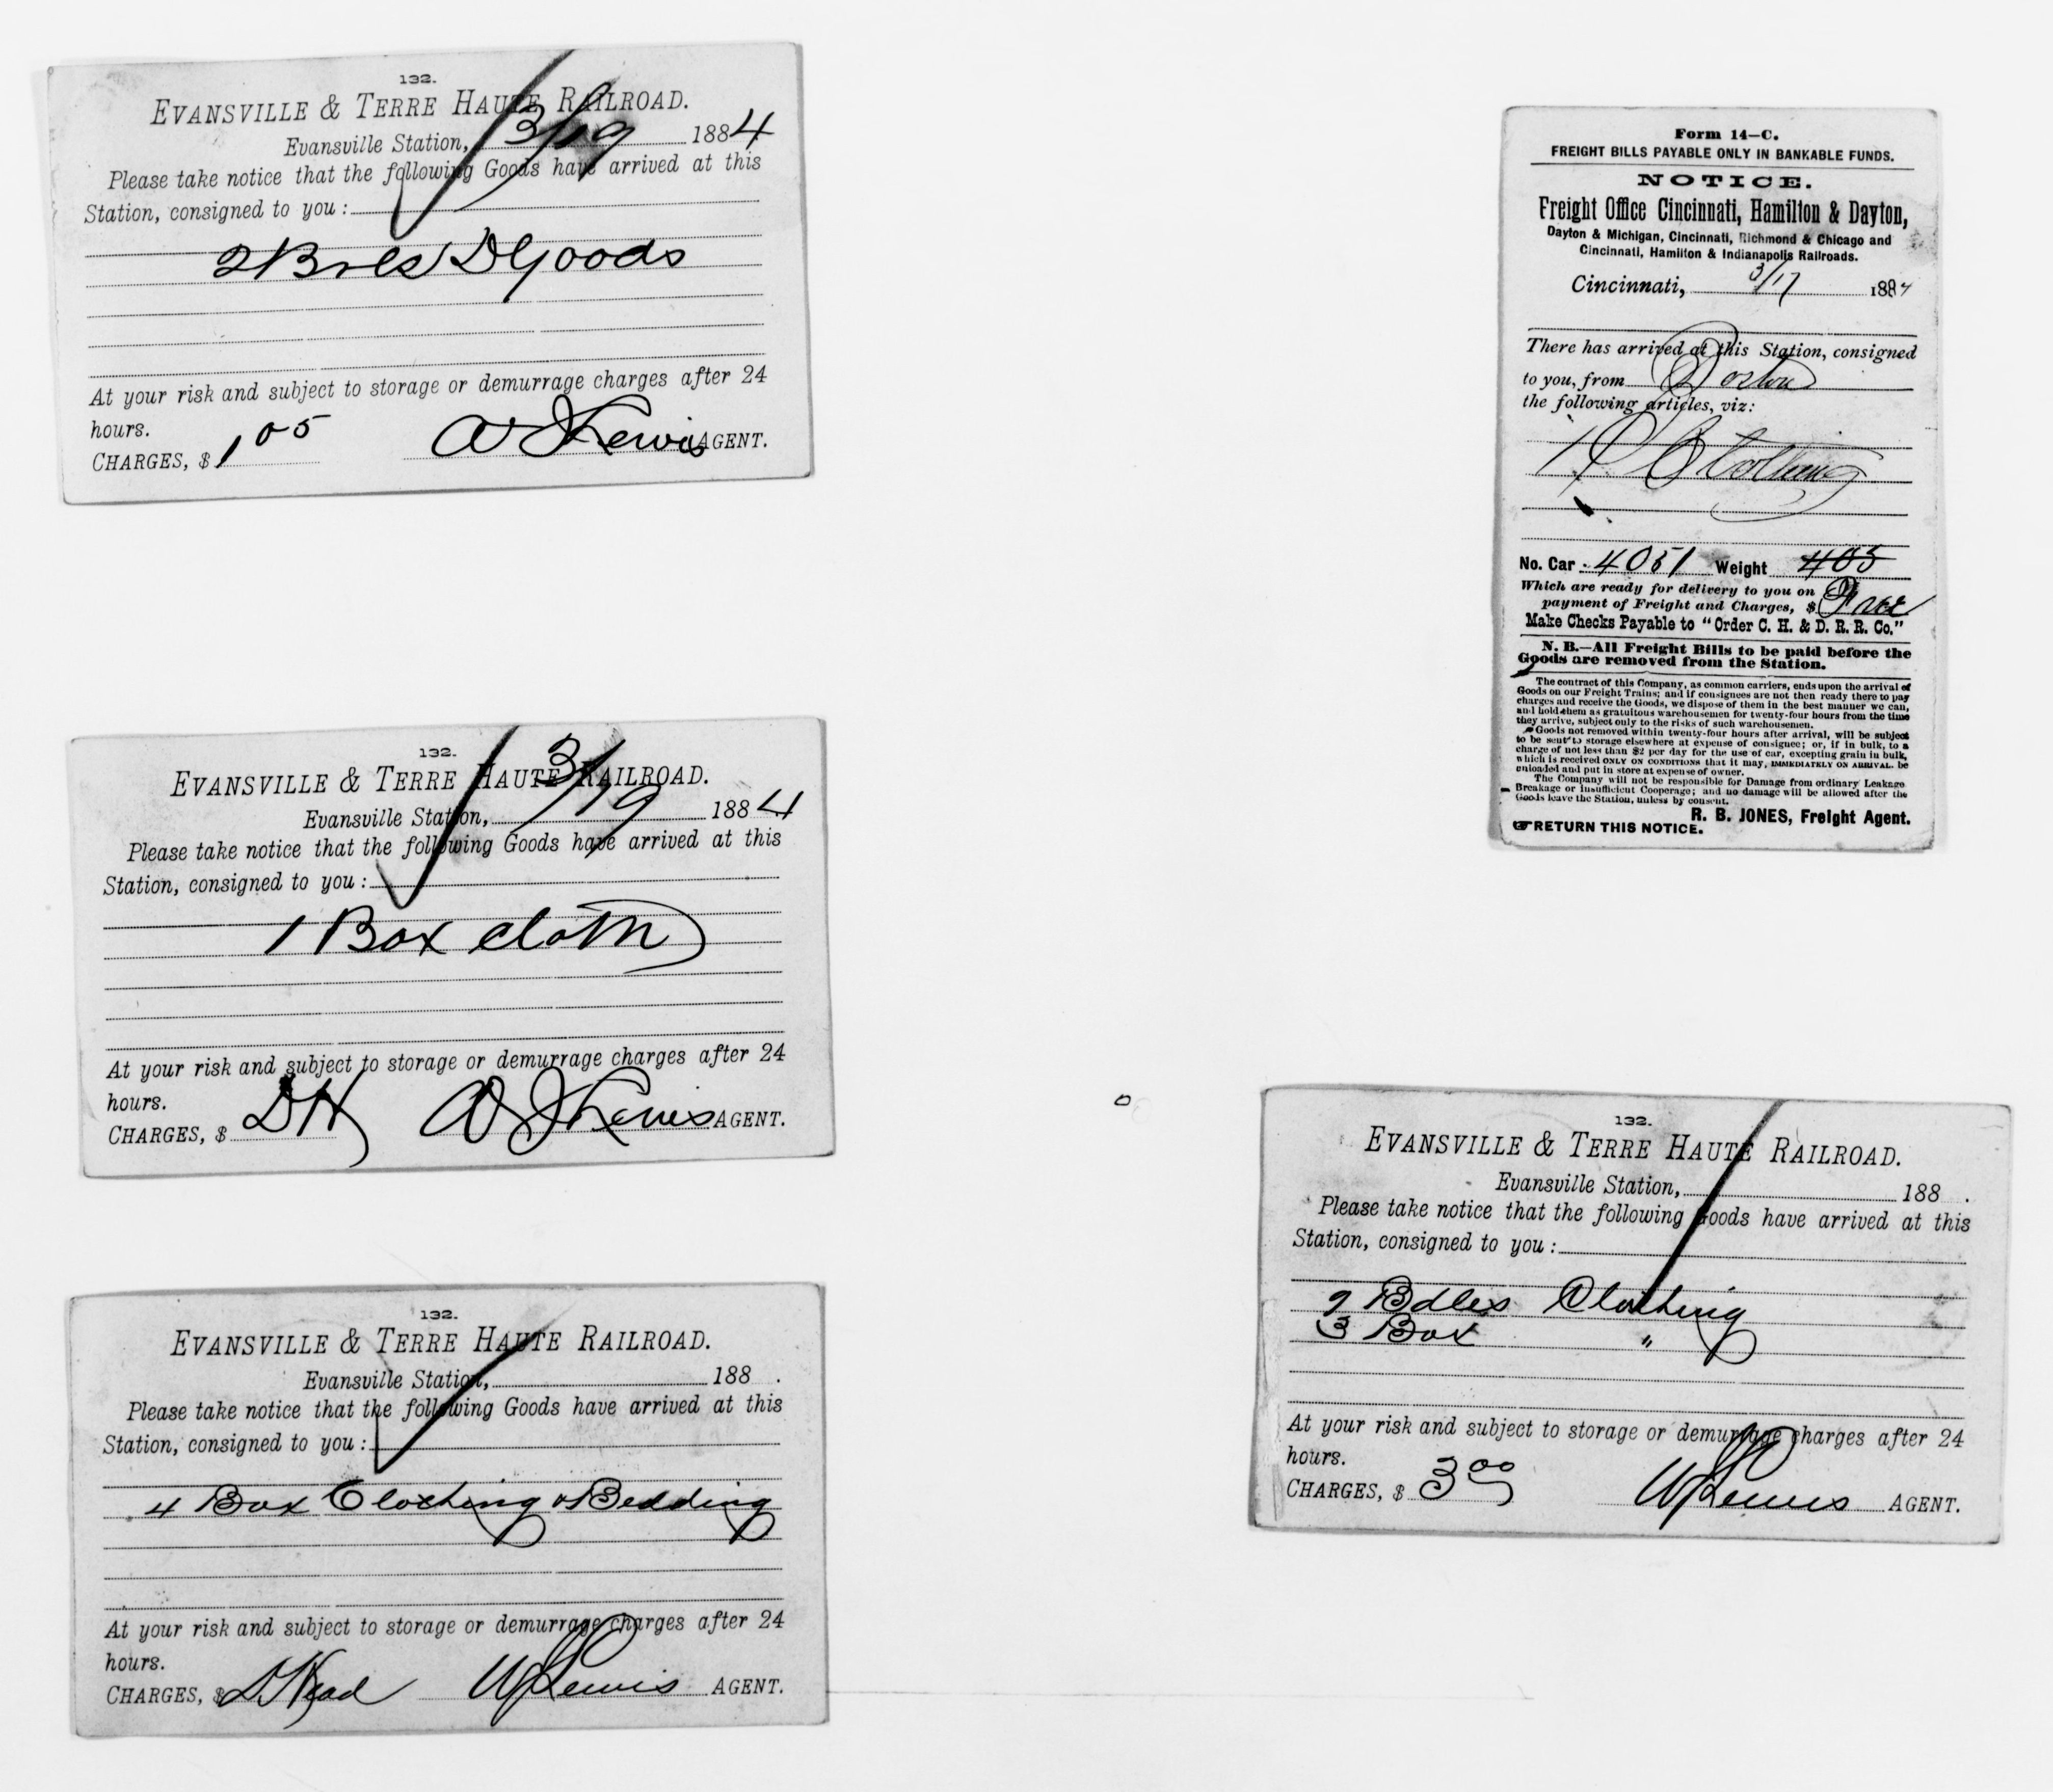 132.
EVANSVILLE & TERRE HAUTE RAILROAD.
Evansville Station, 3/19 1884
Please take notice that the following Goods have arrived at this
Station, consigned to you :
2 Bxes D Goods
At your risk and subject to storage or demurrage charges after 24
hours.
CHARGES, $ 1 05 Lewis AGENT.
132.
EVANSVILLE & TERRE HAUTE RAILROAD.
Evansville Station, 3/19 1884
Please take notice that the following Goods have arrived at this
Station, consigned to you :
1 Box cloth
At your risk and subject to storage or demurrage charges after 24
hours.
CHARGES, $ DH Lewis AGENT.
132.
EVANSVILLE & TERRE HAUTE RAILROAD.
Evansville Station, 188 .
Please take notice that the following Goods have arrived at this
Station, consigned to you :
4 Box Clothing & Bedding
At your risk and subject to storage or demurrage charges after 24
hours.
CHARGES, $ D Head W J Lewis AGENT.
Form 14–C.
FREIGHT BILLS PAYABLE ONLY IN BANKABLE FUNDS.
NOTICE.
Freight Office Cincinnati, Hamilton & Dayton,
Dayton & Michigan, Cincinnati, Richmond & Chicago and
Cincinnati, Hamilton & Indianapolis Railroads.
Cincinnati, 3/17 1884
There has arrived at this Station, consigned
to you, from Boston
the following articles, viz:
1 Clothing
No. Car 4051 Weight 405
Which are ready for delivery to you on
payment of Freight and Charges, $ Free
Make Checks Payable to “Order C. H. & D. R. R. Co.”
N. B.—All Freight Bills to be paid before the
Goods are removed from the Station.
The contract of this Company, as common carriers, ends upon the arrival of
Goods on our Freight Trains; and if consignees are not then ready there to pay
charges and receive the Goods, we dispose of them in the best manner we can,
and hold them as gratuitous warehousemen for twenty-four hours from the time
they arrive, subject only to the risks of such warehousemen.
Goods not removed within twenty-four hours after arrival, will be subject
to be sent to storage elsewhere at expense of consignee; or, if in bulk, to a
charge of not less than $2 per day for the use of car, excepting grain in bulk,
which is received ONLY ON CONDITIONS that it may, IMMEDIATELY ON ARRIVAL, be
unloaded and put in store at expense of owner.
The Company will not be responsible for Damage from ordinary Leakage
Breakage or Insufficient Cooperage; and no damage will be allowed after the
Goods leave the Station, unless by consent.
R. B. JONES, Freight Agent.
☞RETURN THIS NOTICE.
132.
EVANSVILLE & TERRE HAUTE RAILROAD.
Evansville Station, 188 .
Please take notice that the following Goods have arrived at this
Station, consigned to you :
2 Bdles Clothing
3 Box "
At your risk and subject to storage or demurrage charges after 24
hours.
CHARGES, $ 3 00 W J Lewis AGENT.